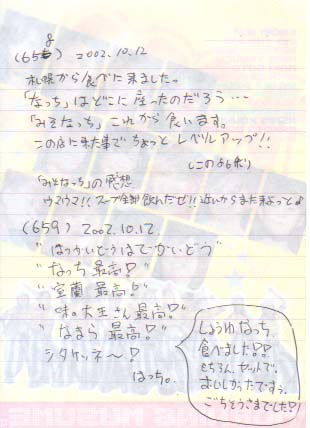 (658) 2002.10.12
札幌から食べに来ました。
「なっち」はどこに座ったのだろう…
「みそなっち」これから食います。
この店に来た事でちょっとレベルアップ!!
「みそなっち」の感想
ウマウマ!!スープ全部飲んだぜ!!近いからまた来よっと♪
(659) 2002.10.12.
"はっかいどうはでっかいどう"
"なっち最高!"
"室蘭最高!"
"味の大王さん最高!"
"なまら最高!"
シタケッネ〜!
はっち。
しょうゆなっち。
食べました!?
もちろん、セットで。
おいしかったですぅ。
ごちそうさまでした?